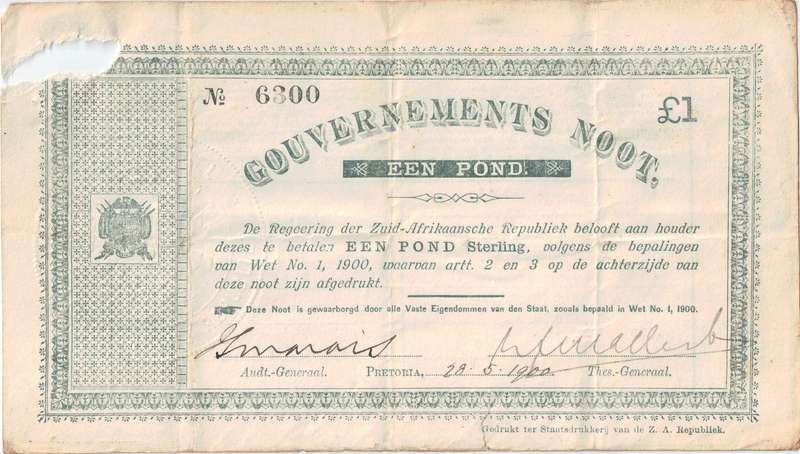 № 6300
£1
GOUVERNEMENTS NOOT,
EEN POND.
De Regeering der Zuid-Afrikaansche Republiek belooft aan houder
dezes te betalen EEN POND Sterling, volgens de bepalingen
van Wet No. 1, 1900, waarvan artt. 2 en 3 op de achterzijde van
deze noot zijn afgedrukt.
Deze Noot is gewaarborgd door alle Vaste Eigendommen van den Staat, zooals bepaald in Wet No. 1, 1900.
Audt.-Generaal. PRETORIA, 28.5.1900 Thes.-Generaal.
Gedrukt ter Staatsdrukkerij van de Z. A. Republiek.